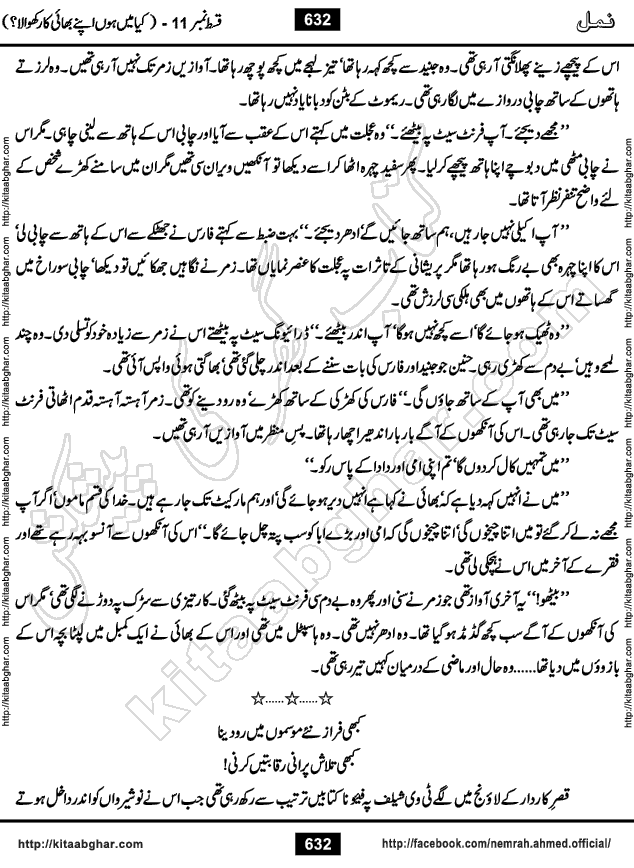 نمل
632
قسط نمبر 11 - (کیا میں ہوں اپنے بھائی کا رکھوالا؟)
اس کے پیچھے زینے پھلانگتی آ رہی تھی۔ وہ جنید سے کچھ کہہ رہا تھا' تیز لہجے میں کچھ پوچھ رہا تھا۔ آوازیں زمر تک نہیں آ رہی تھیں۔ وہ لرزتے
ہاتھوں کے ساتھ چابی دروازے میں لگا رہی تھی۔ ریموٹ کے بٹن کو دبانا یاد نہیں رہا تھا۔
’’مجھے دیجئے۔ آپ فرنٹ سیٹ پہ بیٹھئے۔‘‘ وہ عجلت میں کہتے اس کے عقب سے آیا اور چابی اس کے ہاتھ سے لینی چاہی۔ مگر اس
نے چابی مٹھی میں دبوچے اپنا ہاتھ پیچھے کر لیا۔ پھر سفید چہرہ اٹھا کر اسے دیکھا تو آنکھیں ویران سی تھیں مگر ان میں سامنے کھڑے شخص کے
لئے واضح تنفر نظر آتا تھا۔
’’آپ اکیلی نہیں جا رہیں، ہم ساتھ جائیں گے' ادھر دیجئے۔‘‘ بہت ضبط سے کہتے فارس نے جھٹکے سے اس کے ہاتھ سے چابی لی'
اس کا اپنا چہرہ بھی بے رنگ ہو رہا تھا مگر پریشانی کے تاثرات پہ عجلت کا عنصر نمایاں تھا۔ زمر نے نگاہیں جھکائیں تو دیکھا' چابی سوراخ میں
گھساتے اس کے ہاتھوں میں بھی ہلکی سی لرزش تھی۔
’’وہ ٹھیک ہو جائے گا' اسے کچھ نہیں ہوگا' آپ اندر بیٹھئے۔‘‘ ڈرائیونگ سیٹ پہ بیٹھتے اس نے زمر سے زیادہ خود کو تسلی دی۔ وہ چند
لمحے وہیں' بے دم سے کھڑی رہی۔ حنین جو جنید اور فارس کی بات سننے کے بعد اندر چلی گئی تھی' بھاگتی ہوئی واپس آئی تھی۔
’’میں بھی آپ کے ساتھ جاؤں گی۔‘‘ فارس کی کھڑکی کے ساتھ کھڑے' وہ رو دینے کو تھی۔ زمر آہستہ آہستہ قدم اٹھاتی فرنٹ
سیٹ تک جا رہی تھی۔ اس کی آنکھوں کے آگے بار بار اندھیرا چھا رہا تھا۔ پس منظر میں آوازیں آ رہی تھیں۔
’’میں تمہیں کال کردوں گا' تم اپنی امی اور دادا کے پاس رکو۔‘‘
’’میں نے انہیں کہہ دیا ہے کہ بھائی نے کہا ہے کہ انہیں دیر ہو جائے گی' اور ہم مارکیٹ تک جا رہے ہیں۔ خدا کی قسم ماموں! اگر آپ
مجھے نہ لے کر گئے تو میں اتنا چیخوں گی' اتنا چیخوں گی کہ امی اور بڑے ابا کو سب پتہ چل جائے گا۔‘‘ اس کی آنکھوں سے آنسو بہہ رہے تھے اور
فقرے کے آخر میں اس نے ہچکی لی تھی۔
’’بیٹھو!‘‘ یہ آخری آواز تھی جو زمر نے سنی اور پھر وہ بے دم سی فرنٹ سیٹ پہ بیٹھ گئی۔ کار تیزی سے سڑک پہ دوڑنے لگی تھی' مگر اس
کی آنکھوں کے آگے سب کچھ گڈمڈ ہو گیا تھا۔ وہ ادھر نہیں تھی۔ وہ ہاسپٹل میں تھی اور اس کے بھائی نے ایک کمبل میں لپٹا بچہ اس کے
بازوؤں میں دیا تھا......وہ حال اور ماضی کے درمیان کہیں تیر رہی تھی۔
☆......☆......☆
کبھی فراز نئے موسموں میں رو دینا
کبھی تلاش پرانی رقابتیں کرنی!
قصرِ کاردار کے لاؤنج میں لگے ٹی وی شیلف پہ فیئو نا کتابیں ترتیب سے رکھ رہی تھی جب اس نے نوشیرواں کو اندر داخل ہوتے
کتاب گھر کی پیشکش
kitaabghar.com
http://kitaabghar.com
http://kitaabghar.com
http://kitaabghar.com
http://kitaabghar.com
http://kitaabghar.com
http://kitaabghar.com
http://kitaabghar.com
http://kitaabghar.com
http://kitaabghar.com
http://kitaabghar.com
http://kitaabghar.com
http://kitaabghar.com
http://kitaabghar.com
632
http://facebook.com/nemrah.ahmed.official/